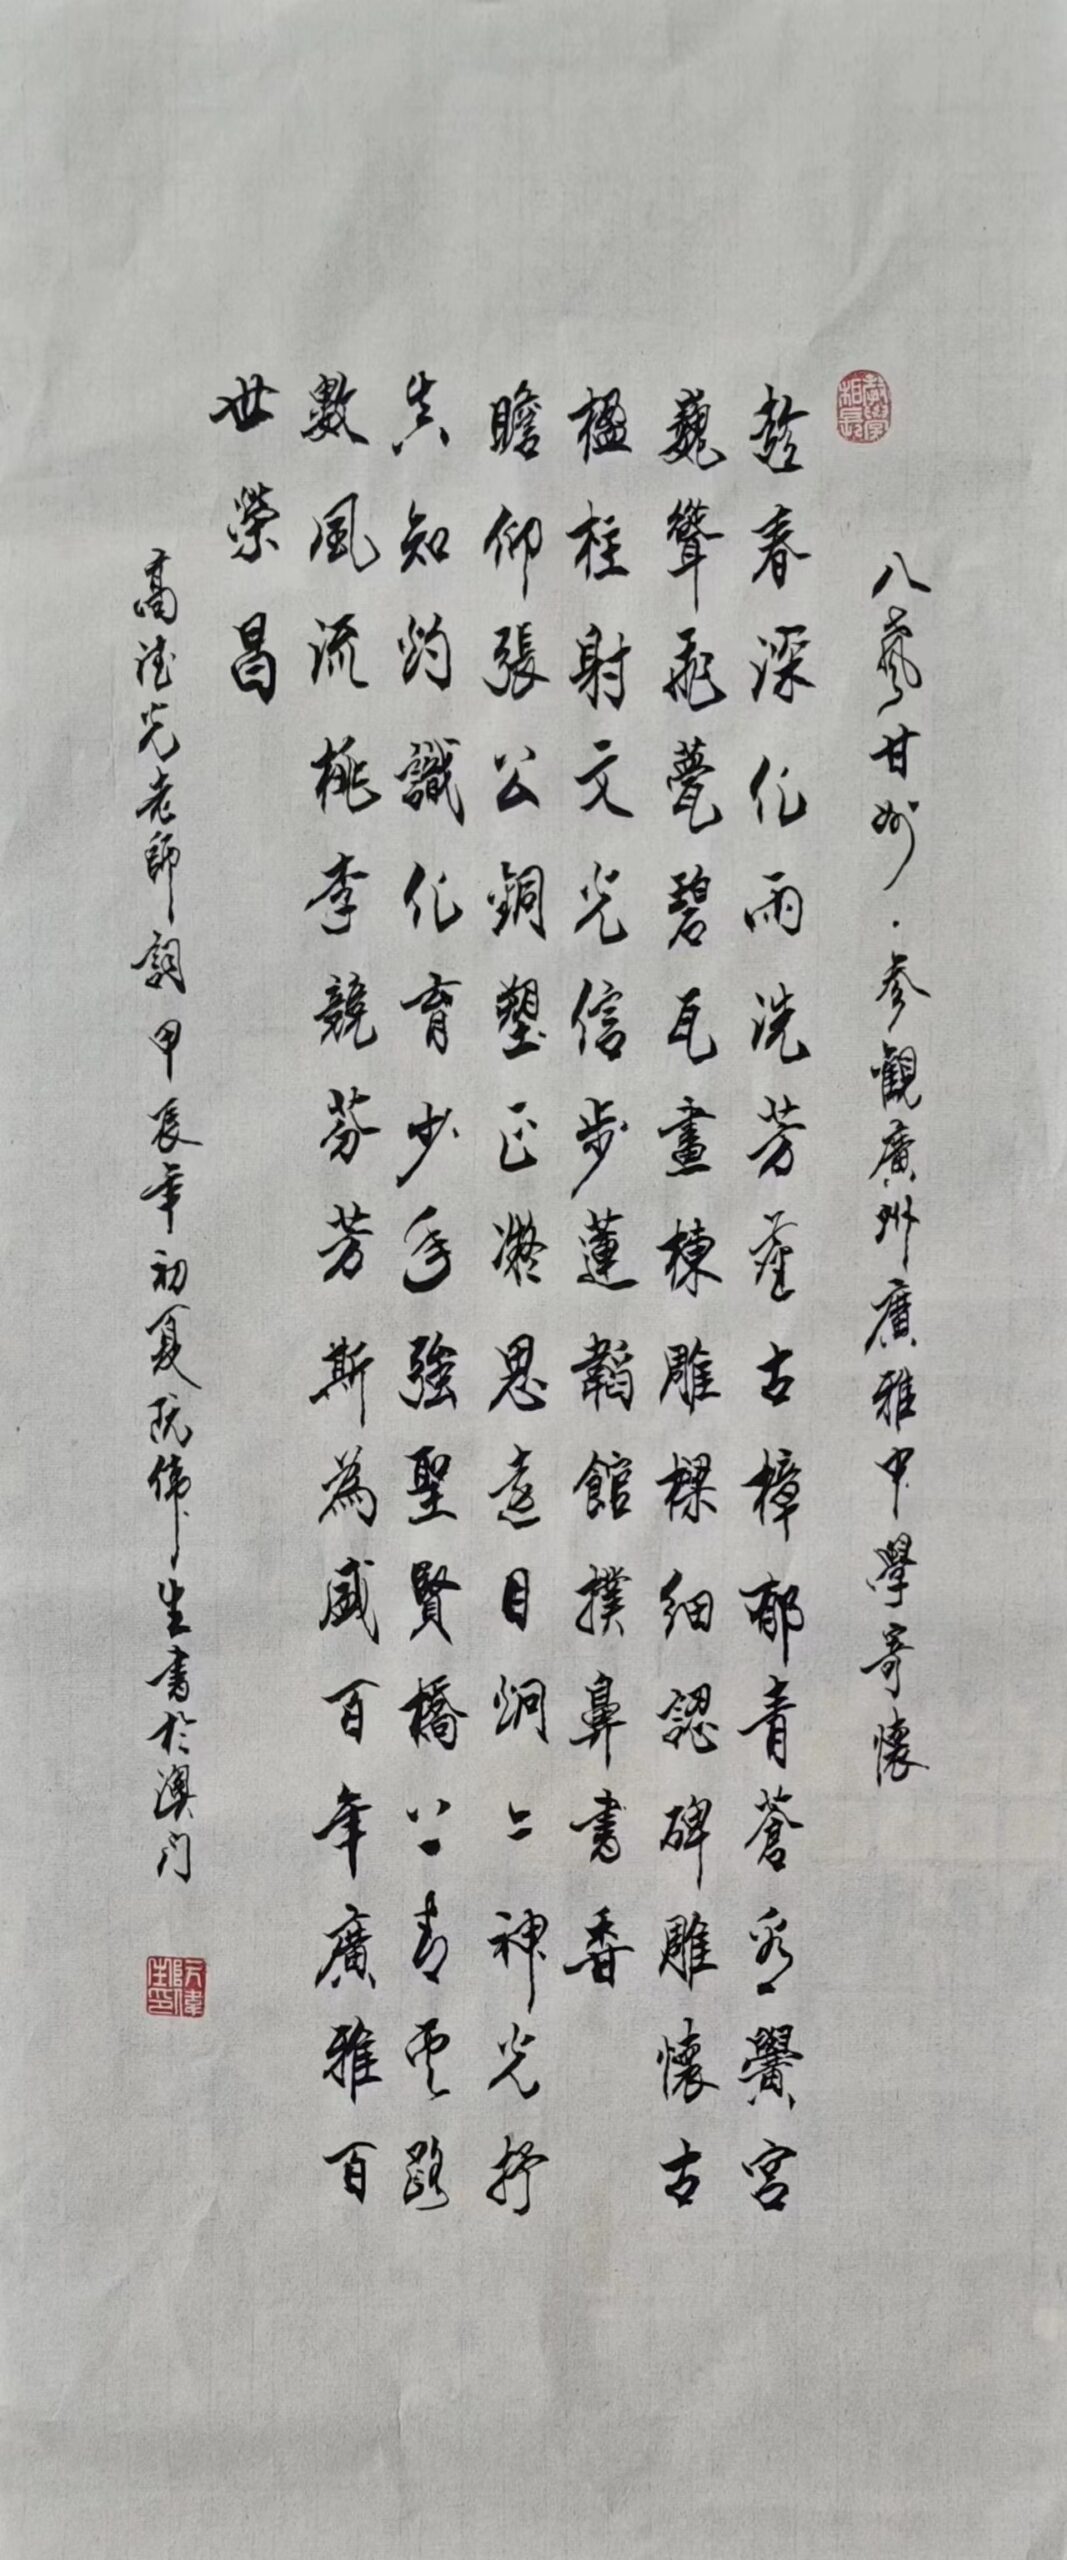 教學相長
八聲甘州·參觀廣州廣雅中學寄懷
趁春深化雨洗芳塵古樟郁青蒼看黌宮
巍聳飛甍碧瓦畫棟雕樑細認碑雕懷古
楹柱射文光信步蓮韜館撲鼻書香
瞻仰張公銅塑正凝思遠目炯炯神光抒
真知灼識化育少年強聖賢橋上青雲路
數風流桃李競芬芳斯為盛百年廣雅百
世榮昌
高德光老師詞甲辰年初夏阮偉生書於澳門
阮偉生印